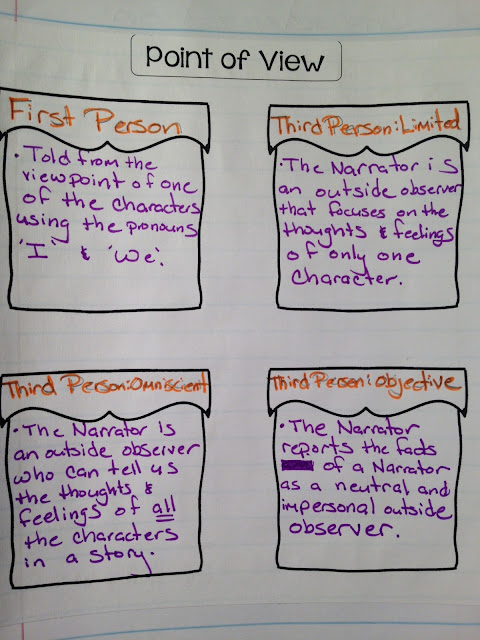 Point of View
First Person
• Told from the
viewpoint of one
of the characters
using the pronouns
'I' & 'We'.
Third Person: Limited
• The Narrator is
an outside observer
that focuses on the
thoughts & feelings
of only one
character.
Third Person: Omniscient
• The Narrator is
an outside observer
who can tell us
the thoughts &
feelings of all
the characters
in a story.
Third Person: Objective
• The Narrator
reports the facts
of a Narrator
as a neutral and
impersonal outside
observer.